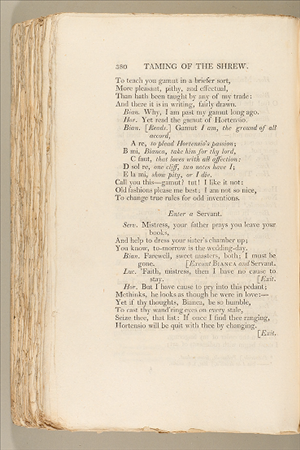 380 TAMING OF THE SHREW.
To teach you gamut in a briefer sort,
More pleasant, pithy, and effectual,
Than hath been taught by any of my trade:
And there it is in writing, fairly drawn.
Bian. Why, I am past my gamut long ago.
Hor. Yet read the gamut of Hortensio.
Bian. [Reads.] Gamut I am, the ground of all
accord,
A re, to plead Hortensio's passion;
B mi, Bianca, take him for thy lord,
C faut, that loves with all affection:
D sol re, one cliff, two notes have I;
E la mi, show pity, or I die.
Call you this—gamut? tut! I like it not:
Old fashions please me best; I am not so nice,
To change true rules for odd inventions.
Enter a Servant.
Serv. Mistress, your father prays you leave your
books,
And help to dress your sister's chamber up;
You know, to-morrow is the wedding-day.
Bian. Farewell, sweet masters, both; I must be
gone. [Exeunt BIANCA and Servant.
Luc. 'Faith, mistress, then I have no cause to
stay. [Exit.
Hor. But I have cause to pry into this pedant;
Methinks, he looks as though he were in love:—
Yet if thy thoughts, Bianca, be so humble,
To cast thy wand'ring eyes on every stale,
Seize thee, that list: If once I find thee ranging,
Hortensio will be quit with thee by changing.
[Exit.